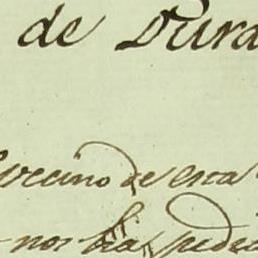 de Dura
vecino de esta
nos hia pedi